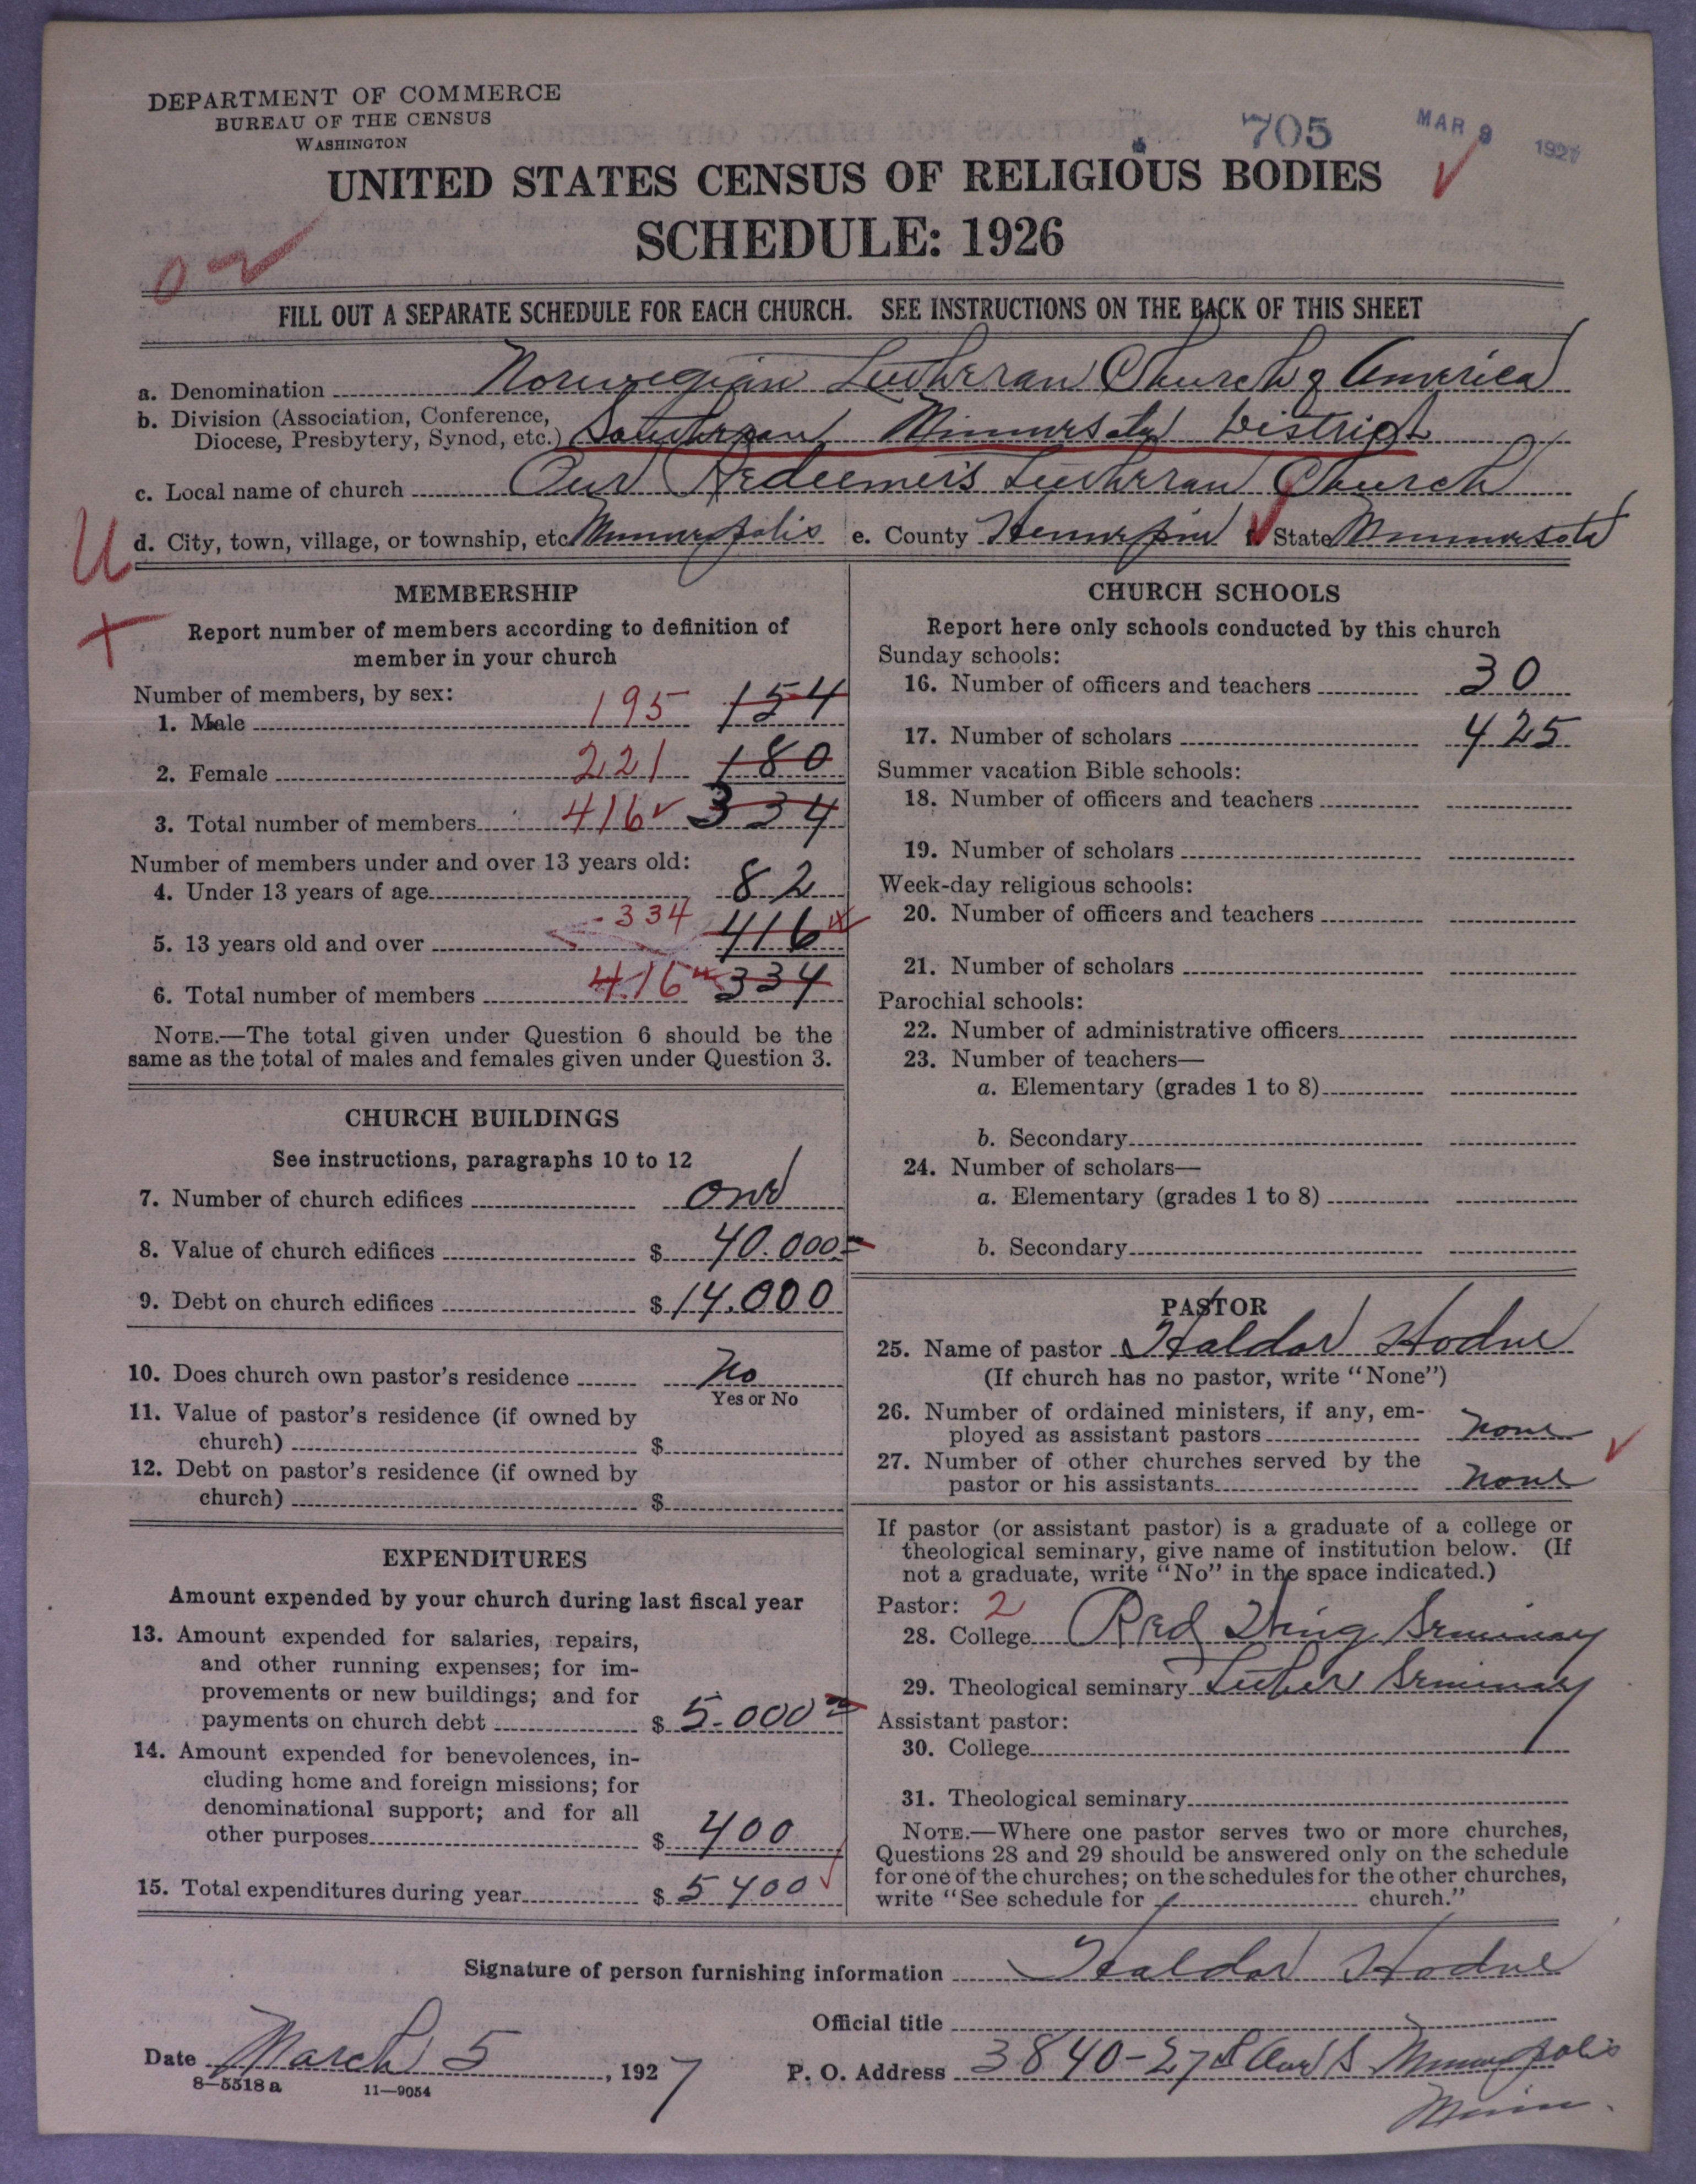 DEPARTMENT OF COMMERCE
BUREAU OF THE CENSUS
WASHINGTON
705
MAR 9 1927
UNITED STATES CENSUS OF RELIGIOUS BODIES
SCHEDULE: 1926
FILL OUT A SEPARATE SCHEDULE FOR EACH CHURCH. SEE INSTRUCTIONS ON THE BACK OF THIS SHEET
a. Denomination Norwegian Lutheran Church of America
b. Division (Association, Conference,
Diocese, Presbytery, Synod, etc.) Southern Minnesota District
c. Local name of church Our Redeemer's Lutheran Church
U d. City, town, village, or township, etc. Minneapolis e. County Hennepin State Minnesota
MEMBERSHIP
Report number of members according to definition of
member in your church
Number of members, by sex:
1. Male 195 154
2. Female 221 180
3. Total number of members 416 334
Number of members under and over 13 years old:
4. Under 13 years of age 82
5. 13 years old and over 334 416
6. Total number of members 416 334
NOTE.—The total given under Question 6 should be the
same as the total of males and females given under Question 3.
CHURCH BUILDINGS
See instructions, paragraphs 10 to 12
7. Number of church edifices One
8. Value of church edifices $ 40.000
9. Debt on church edifices $ 14.000
10. Does church own pastor's residence No
Yes or No
11. Value of pastor's residence (if owned by
church) $
12. Debt on pastor's residence (if owned by
church) $
EXPENDITURES
Amount expended by your church during last fiscal year
13. Amount expended for salaries, repairs,
and other running expenses; for im-
provements or new buildings; and for
payments on church debt $ 5.000
14. Amount expended for benevolences, in-
cluding home and foreign missions; for
denominational support; and for all
other purposes $ 400
15. Total expenditures during year $ 5400
CHURCH SCHOOLS
Report here only schools conducted by this church
Sunday schools:
16. Number of officers and teachers 30
17. Number of scholars 425
Summer vacation Bible schools:
18. Number of officers and teachers
19. Number of scholars
Week-day religious schools:
20. Number of officers and teachers
21. Number of scholars
Parochial schools:
22. Number of administrative officers
23. Number of teachers—
a. Elementary (grades 1 to 8)
b. Secondary
24. Number of scholars—
a. Elementary (grades 1 to 8)
b. Secondary
PASTOR
25. Name of pastor Haldor Hodne
(If church has no pastor, write "None")
26. Number of ordained ministers, if any, em-
ployed as assistant pastors none
27. Number of other churches served by the
pastor or his assistants none
If pastor (or assistant pastor) is a graduate of a college or
theological seminary, give name of institution below. (If
not a graduate, write "No" in the space indicated.)
Pastor: 2
28. College Red Wing Seminary
29. Theological seminary Luther Seminary
Assistant pastor:
30. College
31. Theological seminary
NOTE.—Where one pastor serves two or more churches,
Questions 28 and 29 should be answered only on the schedule
for one of the churches; on the schedules for the other churches,
write "See schedule for church."
Signature of person furnishing information Haldor Hodne
Official title
Date March 5, 1927
P. O. Address 3840-27th Ave S Minneapolis
Minn.
8-5518a 11-9054